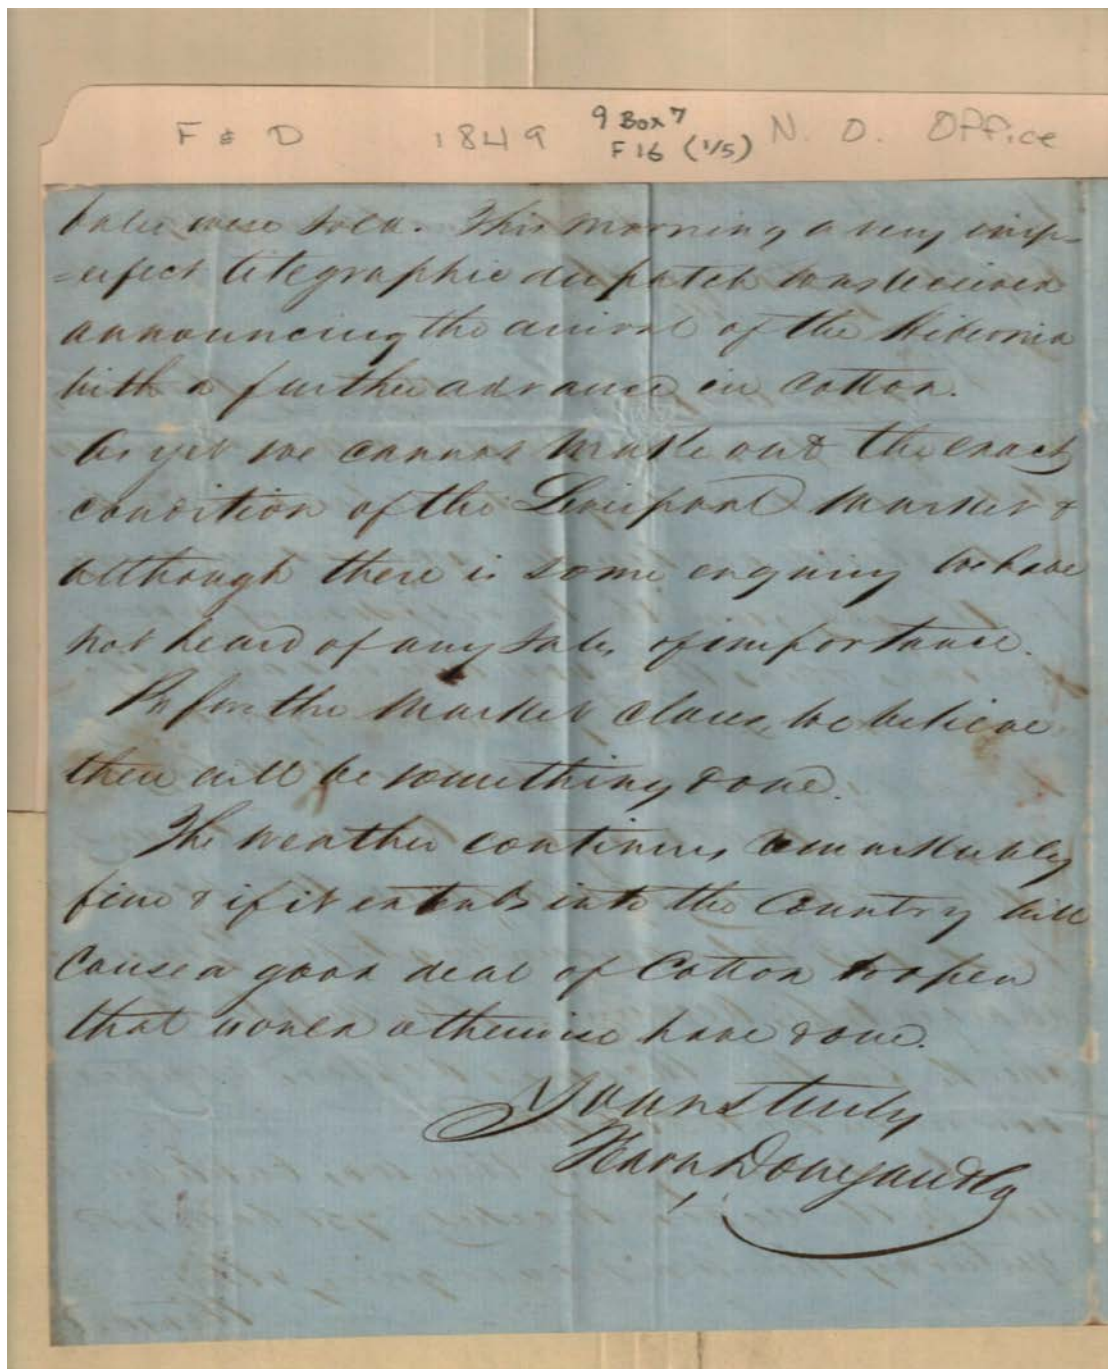 F & D 1849 9 Box 7 N. O. Office
F 16 (1/5)
bales were sold. This morning a very imp-
-erfect telegraphic dispatch was received
announcing the arrival of the Hibernia
with a further advance in Cotton.
As yet we cannot make out the exact
condition of the Liverpool Market &
although there is some enquiry we have
not heard of any sales of importance.
Before the Market closes, we believe
there will be something done.
The weather continues remarkably
fine & if it extends into the Country will
cause a good deal of Cotton to open
that would otherwise have done.
Yours truly
Fearn Donegan & Co